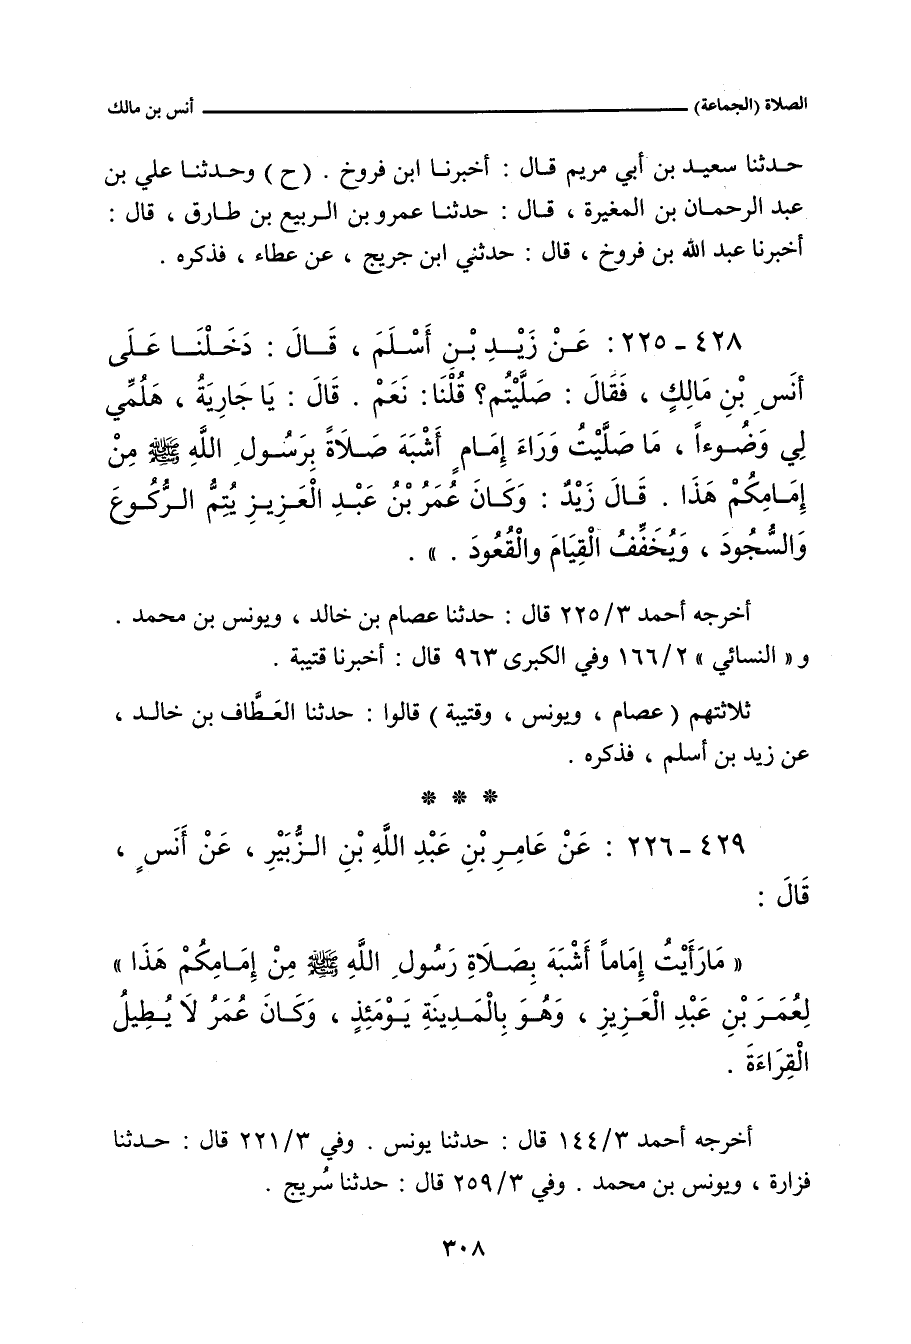 الصلاة (الجماعة) أنس بن مالك
حدثنا سعيد بن أبي مريم قال : أخبرنا ابن فروخ . (ح) وحدثنا علي بن
عبد الرحمان بن المغيرة ، قال : حدثنا عمرو بن الربيع بن طارق ، قال :
أخبرنا عبد الله بن فروخ ، قال : حدثني ابن جريج ، عن عطاء ، فذكره .
٤٢٨ - ٢٢٥ : عَنْ زَيْدِ بْنِ أَسْلَمَ ، قَالَ : دَخَلْنَا عَلَى
أَنَسِ بْنِ مَالِكٍ ، فَقَالَ : صَلَّيْتُم؟ قُلْنَا: نَعَمْ . قَالَ : يَا جَارِيَةُ ، هَلُمِّي
لِي وَضُوءاً ، مَا صَلَّيْتُ وَرَاءَ إِمَامٍ أَشْبَهَ صَلَاةً بِرَسُولِ اللَّهِ ﷺ مِنْ
إِمَامِكُمْ هَذَا . قَالَ زَيْدٌ : وَكَانَ عُمَرُ بْنُ عَبْدِ الْعَزِيزِ يُتِمُّ الرُّكُوعَ
وَالسُّجُودَ ، وَيُخَفِّفُ الْقِيَامَ والْقُعُودَ . » .
أخرجه أحمد ٢٢٥/٣ قال : حدثنا عصام بن خالد ، ويونس بن محمد .
و « النسائي » ١٦٦/٢ وفي الكبرى ٩٦٣ قال : أخبرنا قتيبة .
ثلاثتهم ( عصام ، ويونس ، وقتيبة ) قالوا : حدثنا العَطَّاف بن خالد ،
عن زيد بن أسلم ، فذكره .
* * *
٤٢٩ - ٢٢٦ : عَنْ عَامِرِ بْنِ عَبْدِ اللَّهِ بْنِ الزُّبَيْرِ ، عَنْ أَنَسٍ ،
قَالَ :
« مَارَأَيْتُ إِمَاماً أَشْبَهَ بِصَلَاةِ رَسُولِ اللَّهِ ﷺ مِنْ إِمَامِكُمْ هَذَا »
لِعُمَرَ بْنِ عَبْدِ الْعَزِيزِ ، وَهُوَ بِالْمَدِينَةِ يَوْمَئِذٍ ، وَكَانَ عُمَرُ لَا يُطِيلُ
الْقِرَاءَةَ .
أخرجه أحمد ١٤٤/٣ قال : حدثنا يونس . وفي ٢٢١/٣ قال : حدثنا
فزارة ، ويونس بن محمد . وفي ٢٥٩/٣ قال : حدثنا سُريج .
٣٠٨